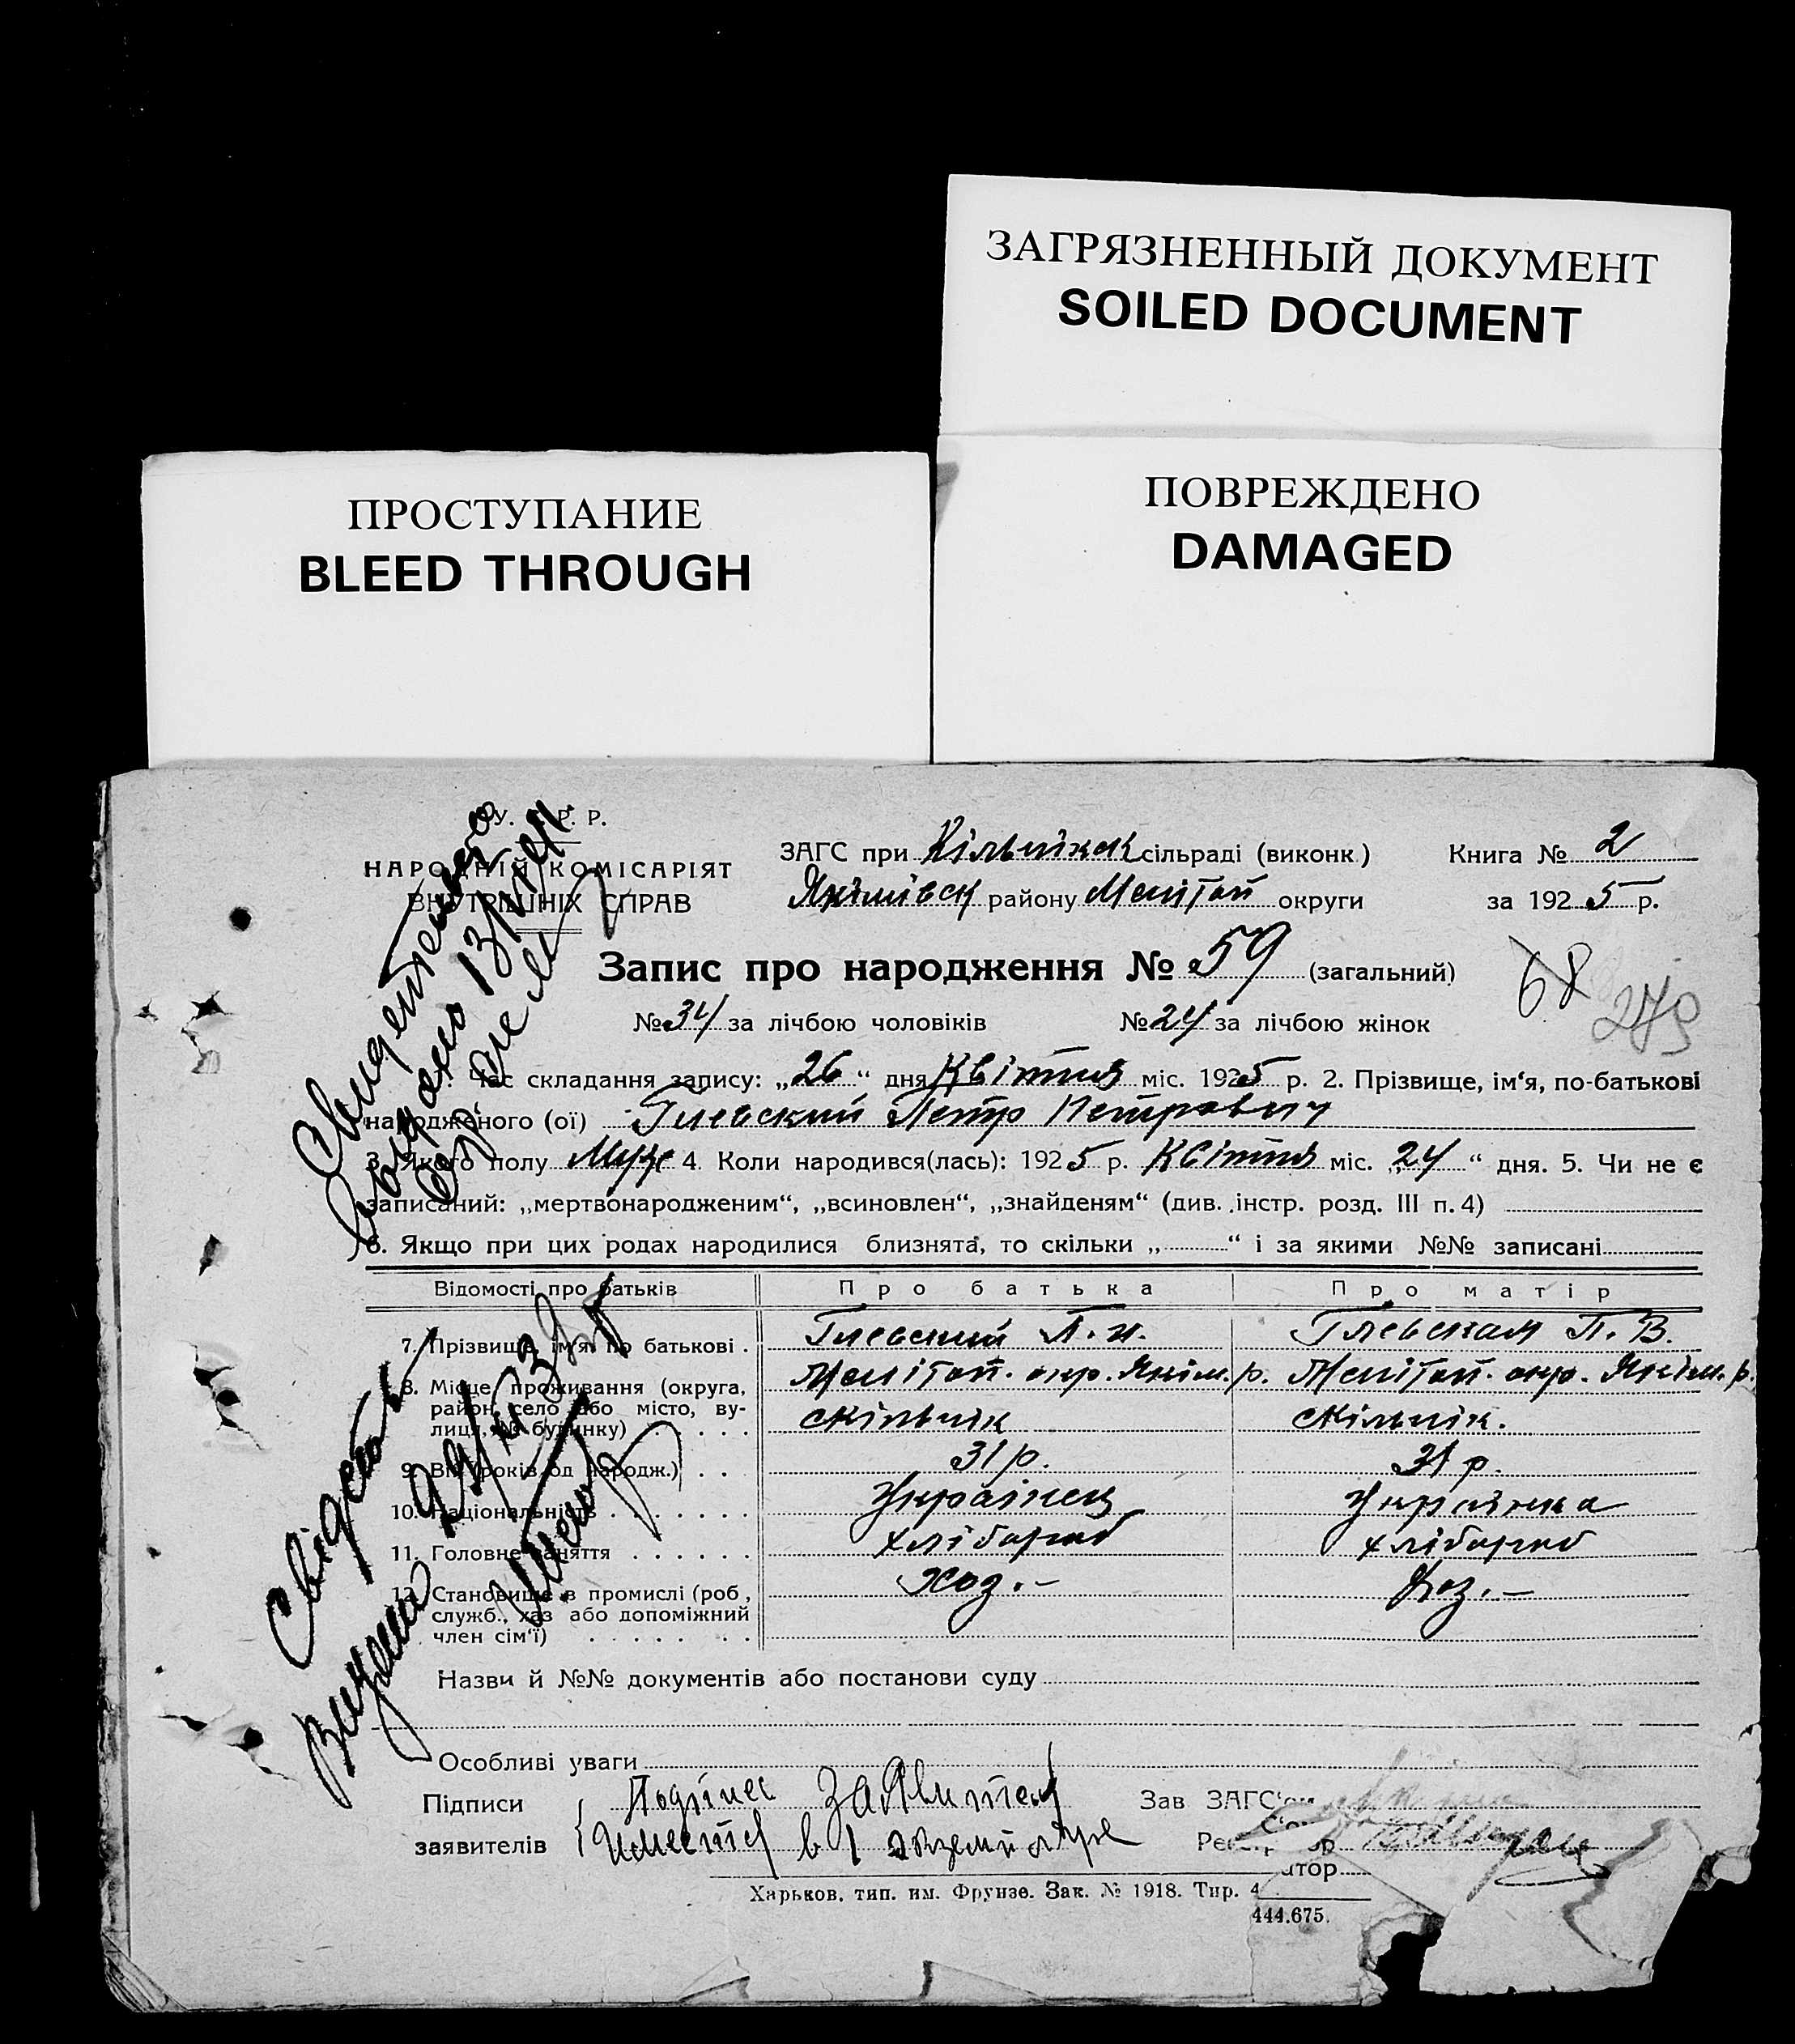 ЗАГРЯЗНЕННЫЙ ДОКУМЕНТ
SOILED DOCUMENT
ПРОСТУПАНИЕ
BLEED THROUGH
ПОВРЕЖДЕНО
DAMAGED
У. Р. Р.
НАРОДНІЙ КОМІСАРІЯТ
ВНУТРІШНІХ СПРАВ
ЗАГС при сільраді (виконк.)
Якімівск району Мелітоп округи
Книга № 2
за 1925 р.
Запис про народження № 59 (загальний)
68
279
№ 34 за лічбою чоловіків № 24 за лічбою жінок
Час складання запису: „26“ дня Квітня міс. 1925 р. 2. Прізвище, ім‘я, по-батькові
народженого (ої) Глевский Петр Петрович
3. Якого полу Муж 4. Коли народився(лась): 1925 р. Квітня міс. „24“ дня. 5. Чи не є
записаний: „мертвонародженим“, „всиновлен“, „знайденям“ (див. інстр. розд. III п. 4)
6. Якщо при цих родах народилися близнята, то скільки „ “ і за якими №№ записані
Відомості про батьків Про батька Про матір
7. Прізвище, ім‘я по батькові . Глевский П. И. Глевская П. В.
8. Місце проживання (округа, Мелітоп. окр. Якім. р. Мелітоп. окр. Якім. р.
район, село або місто, ву-
лиця, № будинку)
9. Вік (років од народж.) . . 31 р. 31 р.
10. Національність Українец Українка
11. Головне заняття хлібороб хлібороб
12. Становище в промислі (роб, Хоз. – Хоз. –
служб., хаз або допоміжний
член сім‘ї)
Назви й №№ документів або постанови суду
Особливі уваги
Підписи заявителів
Подпись Заявителя
Имеется в 1 экземпляре
Зав ЗАГС‘ом
атор
Харьков, тип. им. Фрунзе. Зак. № 1918. Тир. 4
444.675.
Свидетельство
выдано 13/VI 41
Свідет
видано